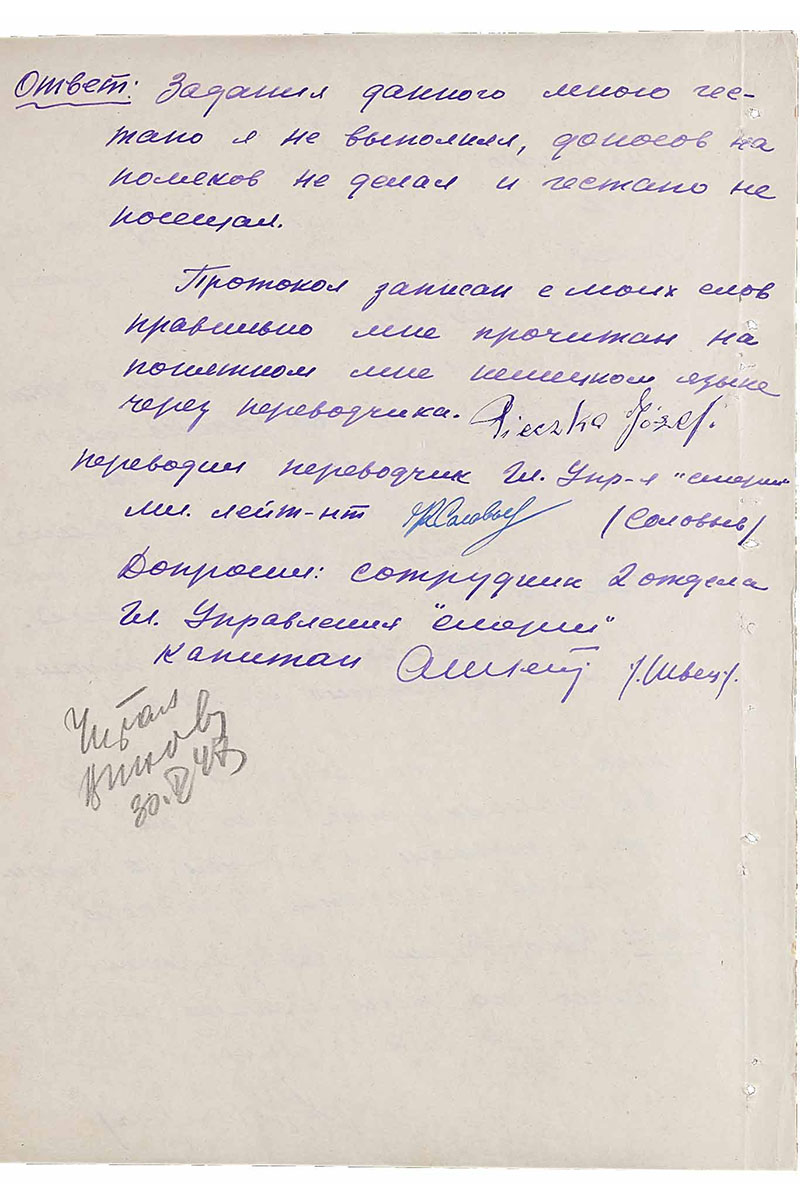 Ответ: Задания данного мною гес-
тапо я не выполнял, доносов на
поляков не делал и гестапо не
посещал.
Протокол записан с моих слов
правильно мне прочитан на
понятном мне немецком языке
через переводчика. Pieczka Józef.
переводил переводчик Гл. Упр-я "смерш"
мл. лейт-нт (Соловьев)
Допросил: сотрудник 2 отдела
Гл. Управления "смерш"
капитан /.Швец/.
Читал
30.V 47